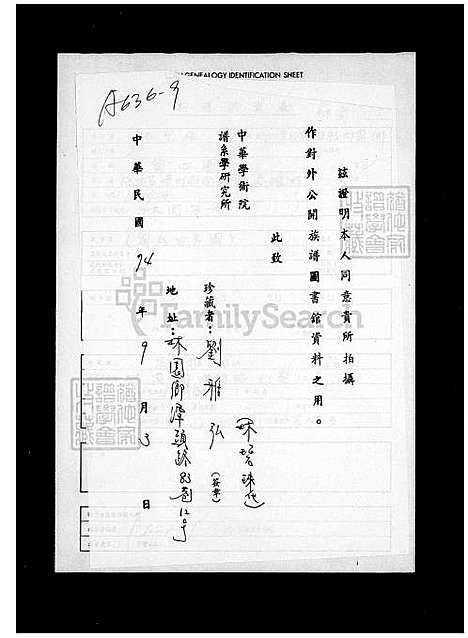 GENEALOGY IDENTIFICATION SHEET
A636-9
茲證明本人同意貴所拍攝
作對外公開族譜圖書館資料之用。
此致
中華學術院
譜系學研究所
珍藏者：劉雅弘(簽章)
地址：林園鄉潭頭路83巷12号
中華民國74年9月3日
FamilySearch